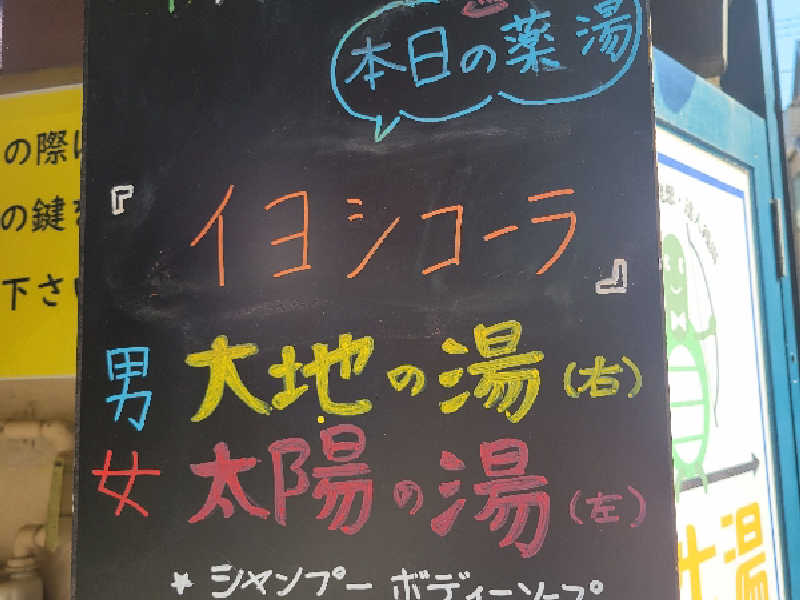 本日の薬湯
『イヨシコーラ』
男 大地の湯(右)
女 太陽の湯(左)
★ シャンプー ボディーソープ
の際
の鍵
下さい
湯